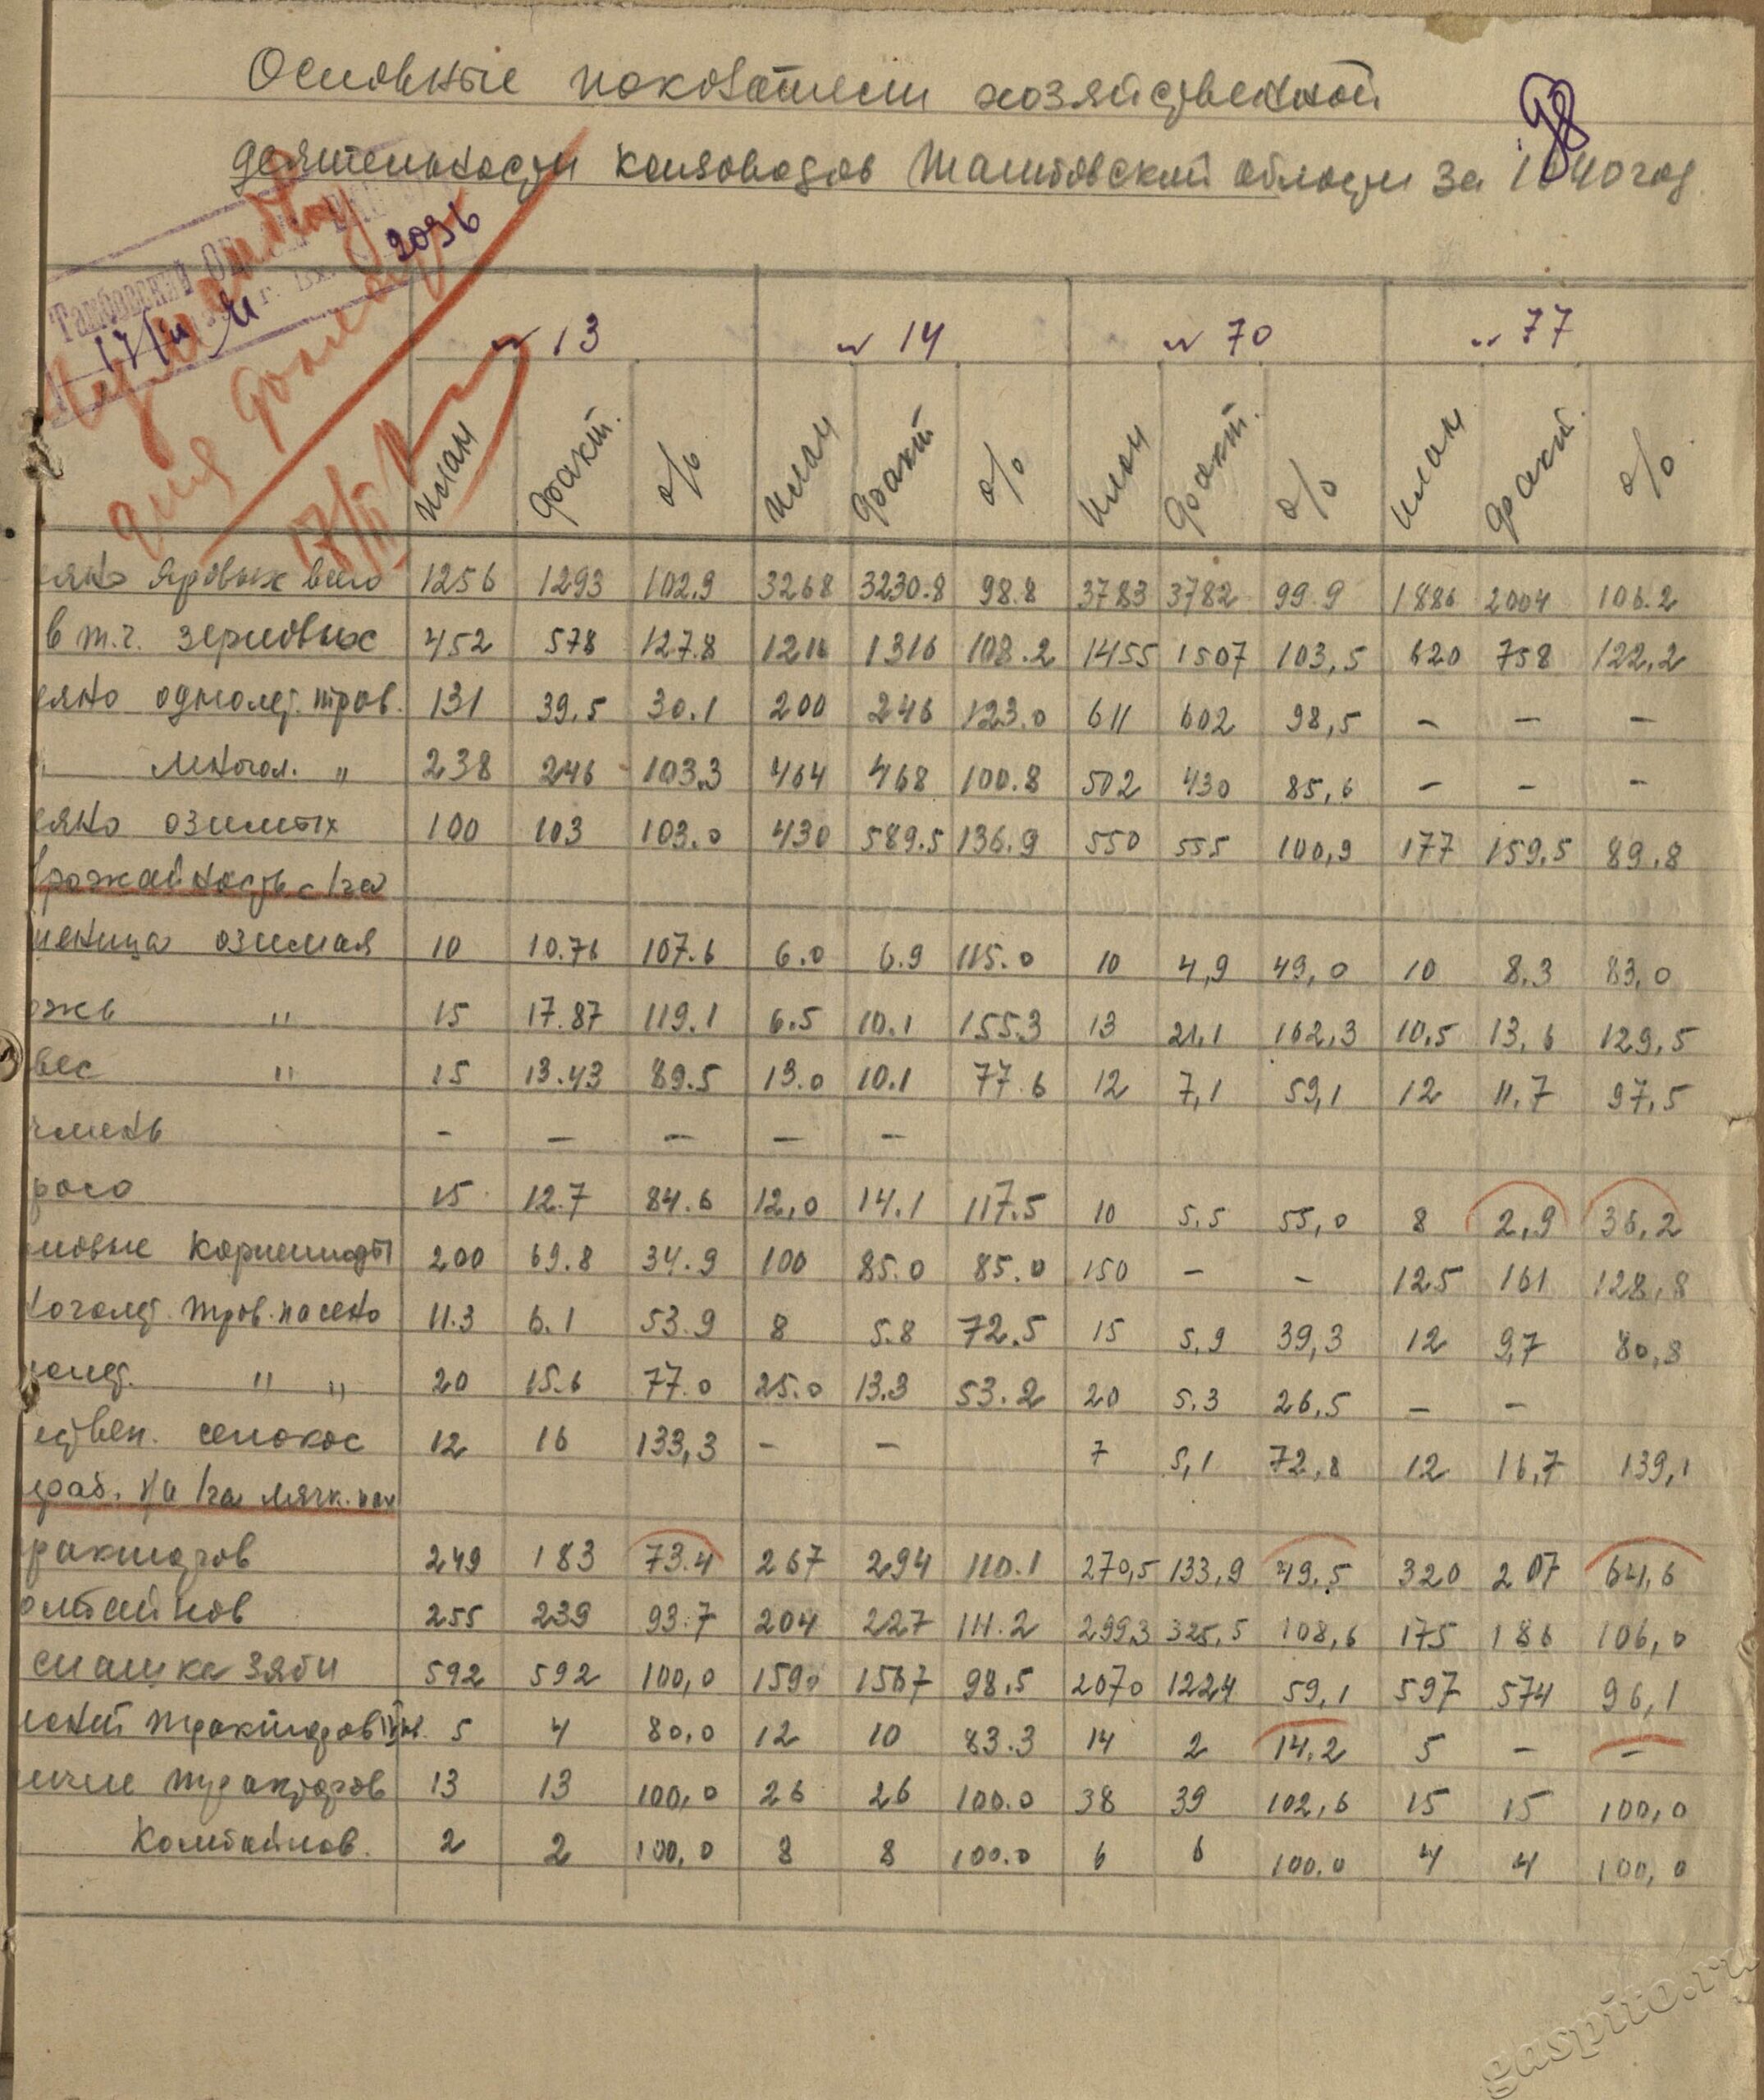 Основные показатели хозяйственной
деятельности конзаводов Тамбовской области за 1940 год
98
Тамбовский
2036
17/III
для доклада
17/III
№ 13 № 14 № 70 № 77
план факт. % план факт % план факт. % план факт. %
яно яровых всего 1256 1293 102.9 3268 3230.8 98.8 3783 3782 99.9 1886 2004 106.2
в т.ч. зерновых 452 578 127.8 1216 1316 108.2 1455 1507 103,5 620 758 122,2
еяно однолет. трав. 131 39.5 30.1 200 246 123.0 611 602 98,5 – – –
" многол. " 238 246 103.3 464 468 100.8 502 430 85,6 – – –
еяно озимых 100 103 103.0 430 589.5 136.9 550 555 100,9 177 159,5 89.8
рожайность с/га
шеница озимая 10 10.76 107.6 6.0 6.9 115.0 10 4,9 49,0 10 8.3 83,0
ожь " 15 17.87 119.1 6.5 10.1 155.3 13 21,1 162,3 10,5 13,6 129,5
вес " 15 13.43 89.5 13.0 10.1 77.6 12 7,1 59,1 12 11,7 97,5
чмень – – – – –
росо 15 12.7 84.6 12,0 14.1 117.5 10 5.5 55,0 8 2,9 36,2
мовые корнеплоды 200 69.8 34.9 100 85.0 85.0 150 – – 125 161 128,8
ноголет. трав. на сено 11.3 6.1 53.9 8 5.8 72.5 15 5,9 39,3 12 9,7 80,8
нолет. " " 20 15.6 77.0 25.0 13.3 53.2 20 5.3 26,5 – –
ествен. сенокос 12 16 133,3 – – 7 5,1 72,8 12 16,7 139,1
раб. на 1га мягк. пах
ракторов 249 183 73.4 267 294 110.1 270,5 133,9 49,5 320 207 64,6
омбайнов 255 239 93.7 204 227 111.2 299,3 325,5 108,6 175 186 106,0
спашка зяби 592 592 100,0 1590 1567 98.5 2070 1224 59,1 597 574 96,1
монт тракторов IVкв. 5 4 80,0 12 10 83.3 14 2 14,2 5 – –
личие тракторов 13 13 100,0 26 26 100.0 38 39 102,6 15 15 100,0
Комбайнов. 2 2 100,0 8 8 100.0 6 6 100,0 4 4 100,0
gaspito.ru